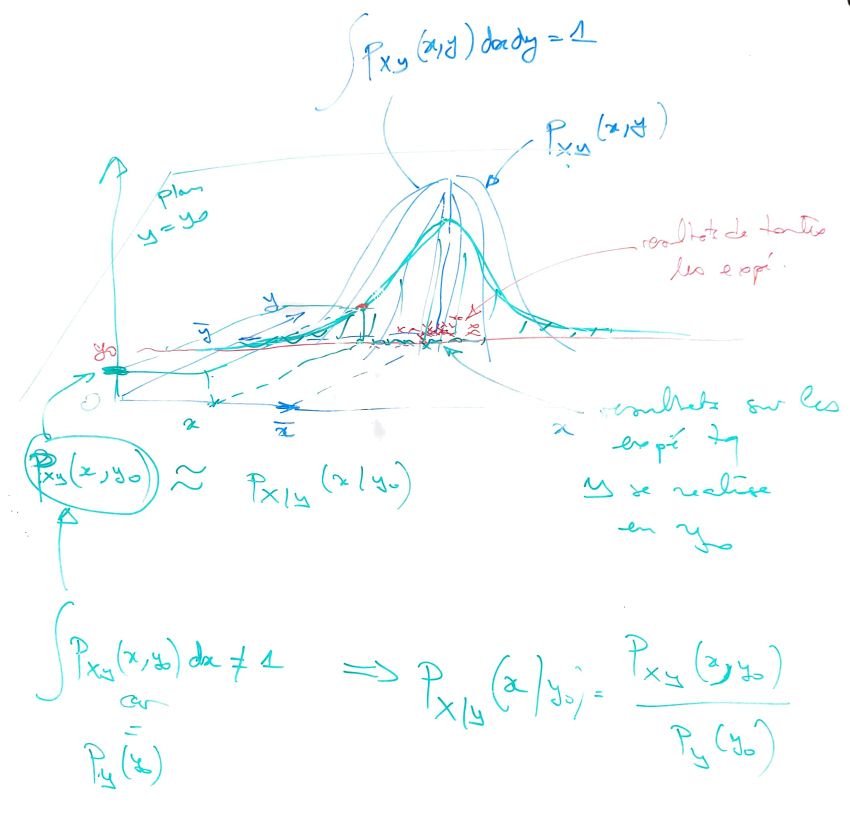 ∫ P_XY (x,y) dx dy = 1
P_XY (x,y)
plan
y = y₀
résultats de toutes
les expé.
y
ȳ
y₀
0
x
x̄
x
résultats sur les
expé tq
Y se réalise
en y₀
P_XY (x, y₀) ≈ P_X/Y (x/y₀)
∫ P_XY (x, y₀) dx ≠ 1
car
=
P_Y (y₀)
⇒ P_X/Y (x/y₀) = P_XY (x, y₀) / P_Y (y₀)